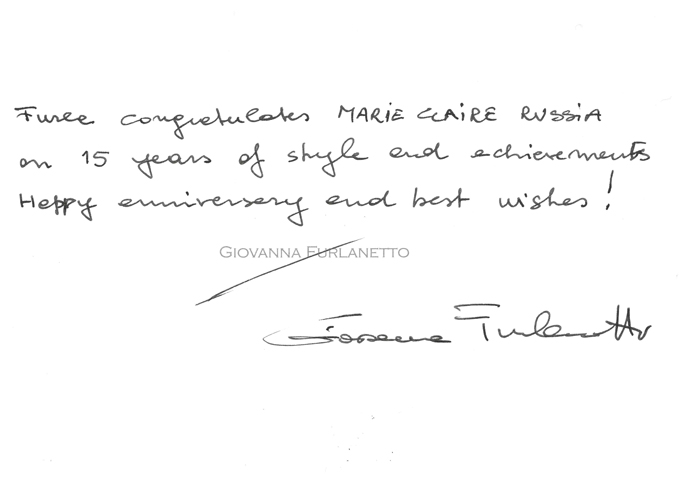 Furla congratulates MARIE CLAIRE RUSSIA
on 15 years of style and achievements
Happy anniversary and best wishes!
GIOVANNA FURLANETTO
Giovanna Furlanetto